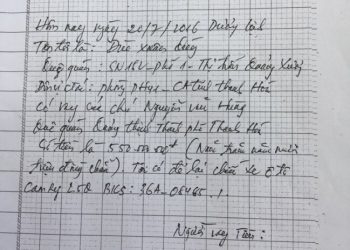 Hôm nay ngày 20/7/2016 Dương lịch
Tên tôi là: Đào Xuân
Quê quán: SN 15 Phố 1 - Thị trấn Quảng Xương
Đơn vị: phòng PH41 - CA tỉnh Thanh Hóa
Có vay của chú Nguyễn Hùng
Quê quán Quảng Thành phố Thanh Hóa
Số tiền là 552.000.000đ (Năm trăm năm mươi
triệu đồng chẵn). Tôi có để lại chiếc xe ô tô
Camry 2.5Q BKS: 36A-08465.!
Người vay tiền: